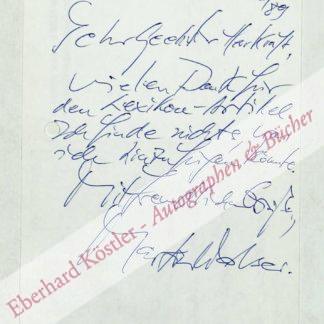 89
Sehr geehrter Herr Kraft,
vielen Dank für
den Lexikon-Artikel
Ich finde nichts, was
ich hinzufügen könnte.
Mit freundlichen Grüßen,
Martin Walser.
Eberhard Köstler - Autographen & Bücher